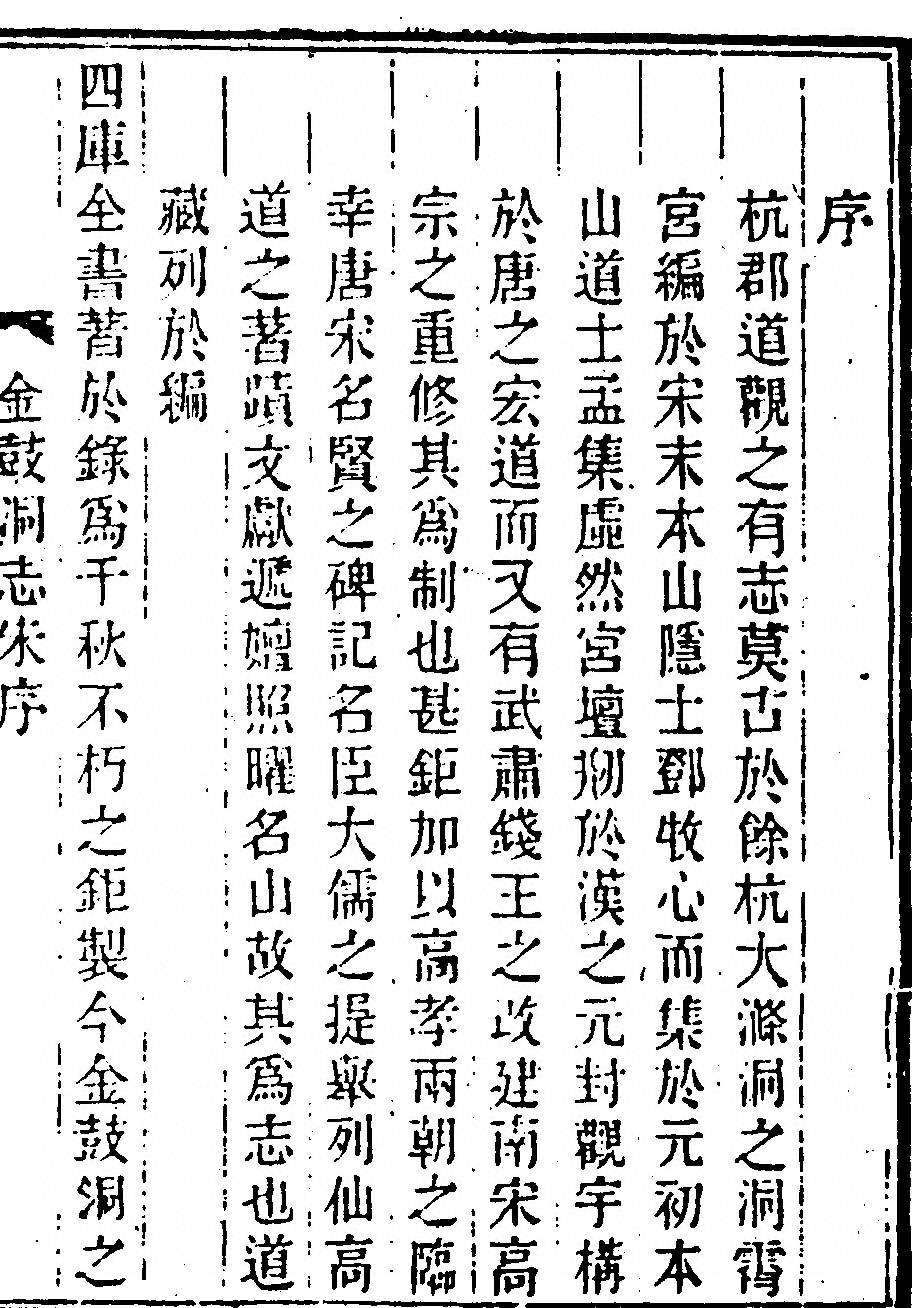 序
杭郡道觀之有志莫古於餘杭大滌洞之洞霄
宮編於宋末本山隱士鄧牧心而集於元初本
山道士孟集虛然宮壇剙於漢之元封觀宇構
於唐之宏道而又有武肅錢王之改建南宋高
宗之重修其爲制也甚鉅加以高孝兩朝之臨
幸唐宋名賢之碑記名臣大儒之提舉列仙高
道之著蹟文獻遞嬗照曜名山故其爲志也道
藏列於編
四庫全書著於錄爲千秋不朽之鉅製今金鼓洞之
金鼓洞志朱序